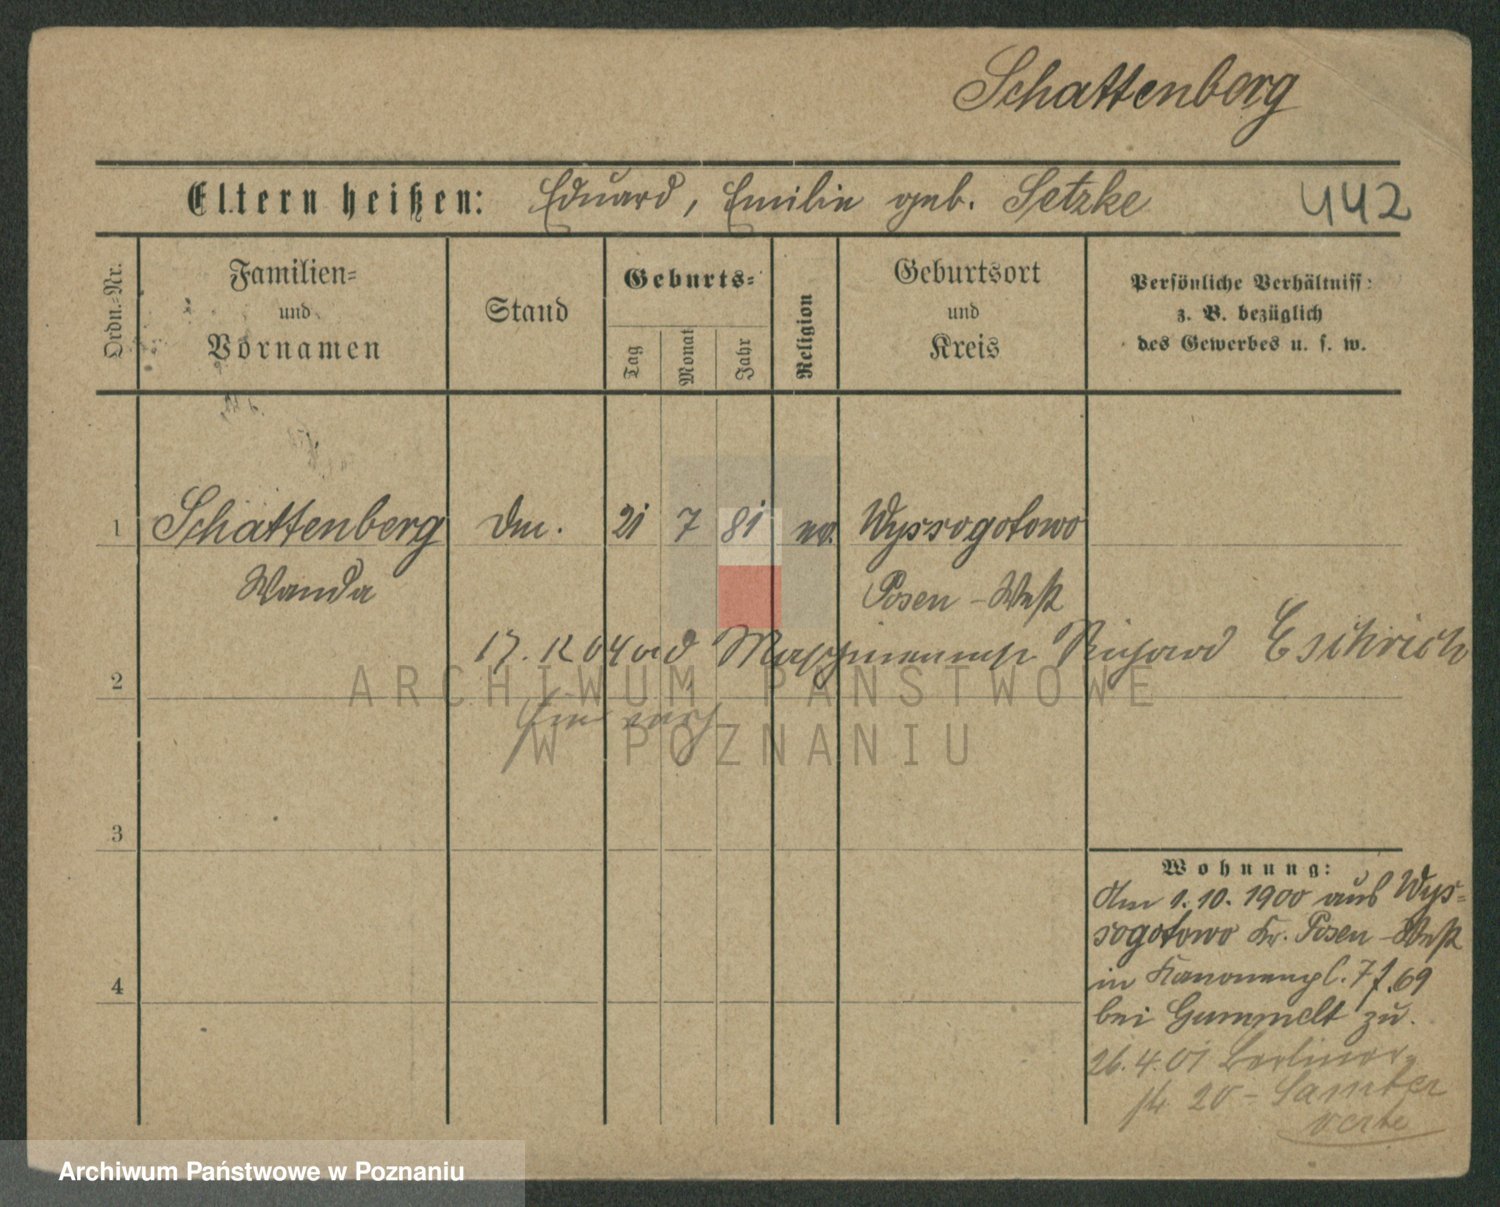 Schattenberg
Eltern heißen: Eduard, Emilie geb. Setzke
442
Ordn.-Nr.
Familien-
und
Vornamen
Stand
Geburts-
Tag
Monat
Jahr
Religion
Geburtsort
und
Kreis
Persönliche Verhältniss:
z. B. bezüglich
des Gewerbes u. s. w.
1 Schattenberg 21 7 81 ev. Wyssogotowo
Wanda Posen-West
2 17.12.04 Richard
3
4
Wohnung:
Am 1.10.1900 aus Wys-
sogotowo Kr. Posen-West
in Kanonenpl. 7 f. 69
bei Gummelt zu.
26.4.01 Berliner-
str. 20 - Samter
ARCHIWUM PAŃSTWOWE
W POZNANIU
Archiwum Państwowe w Poznaniu